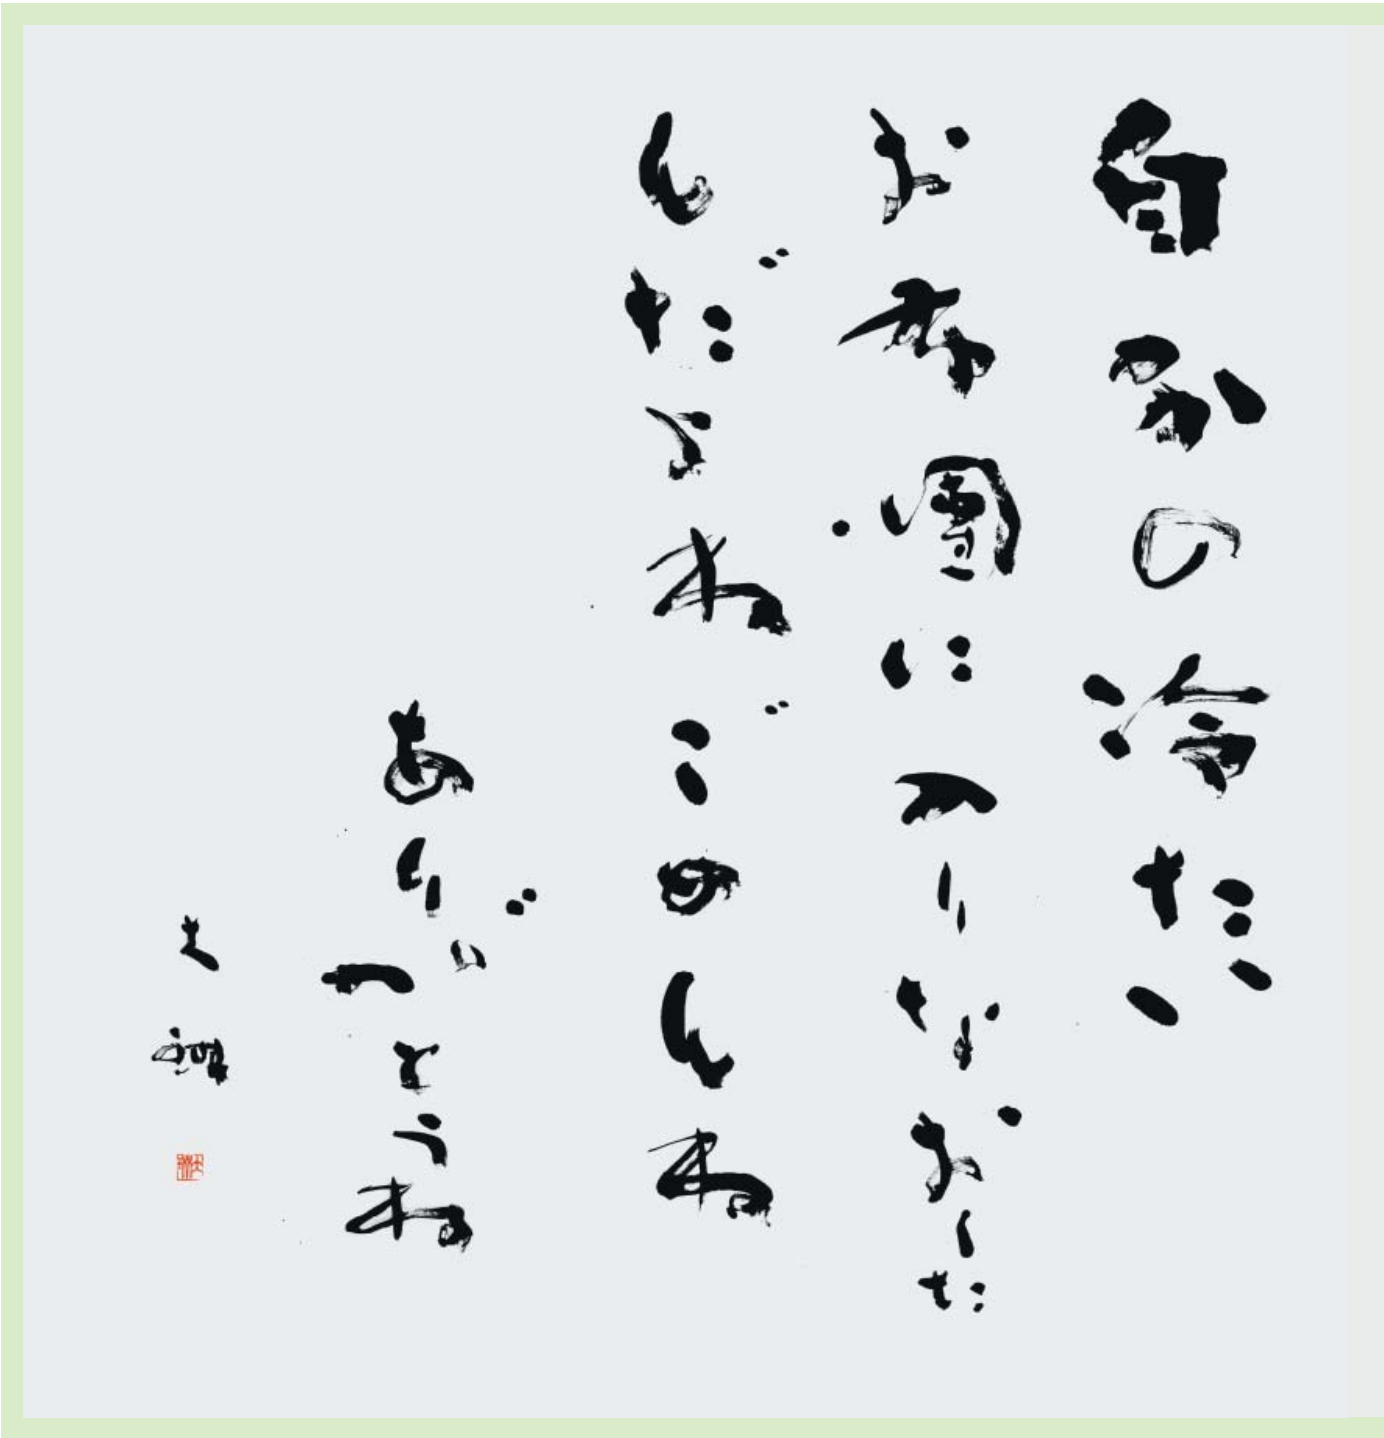 自分の冷たい
お布團に入りなおした
んだよねごめんね
ありがとうね